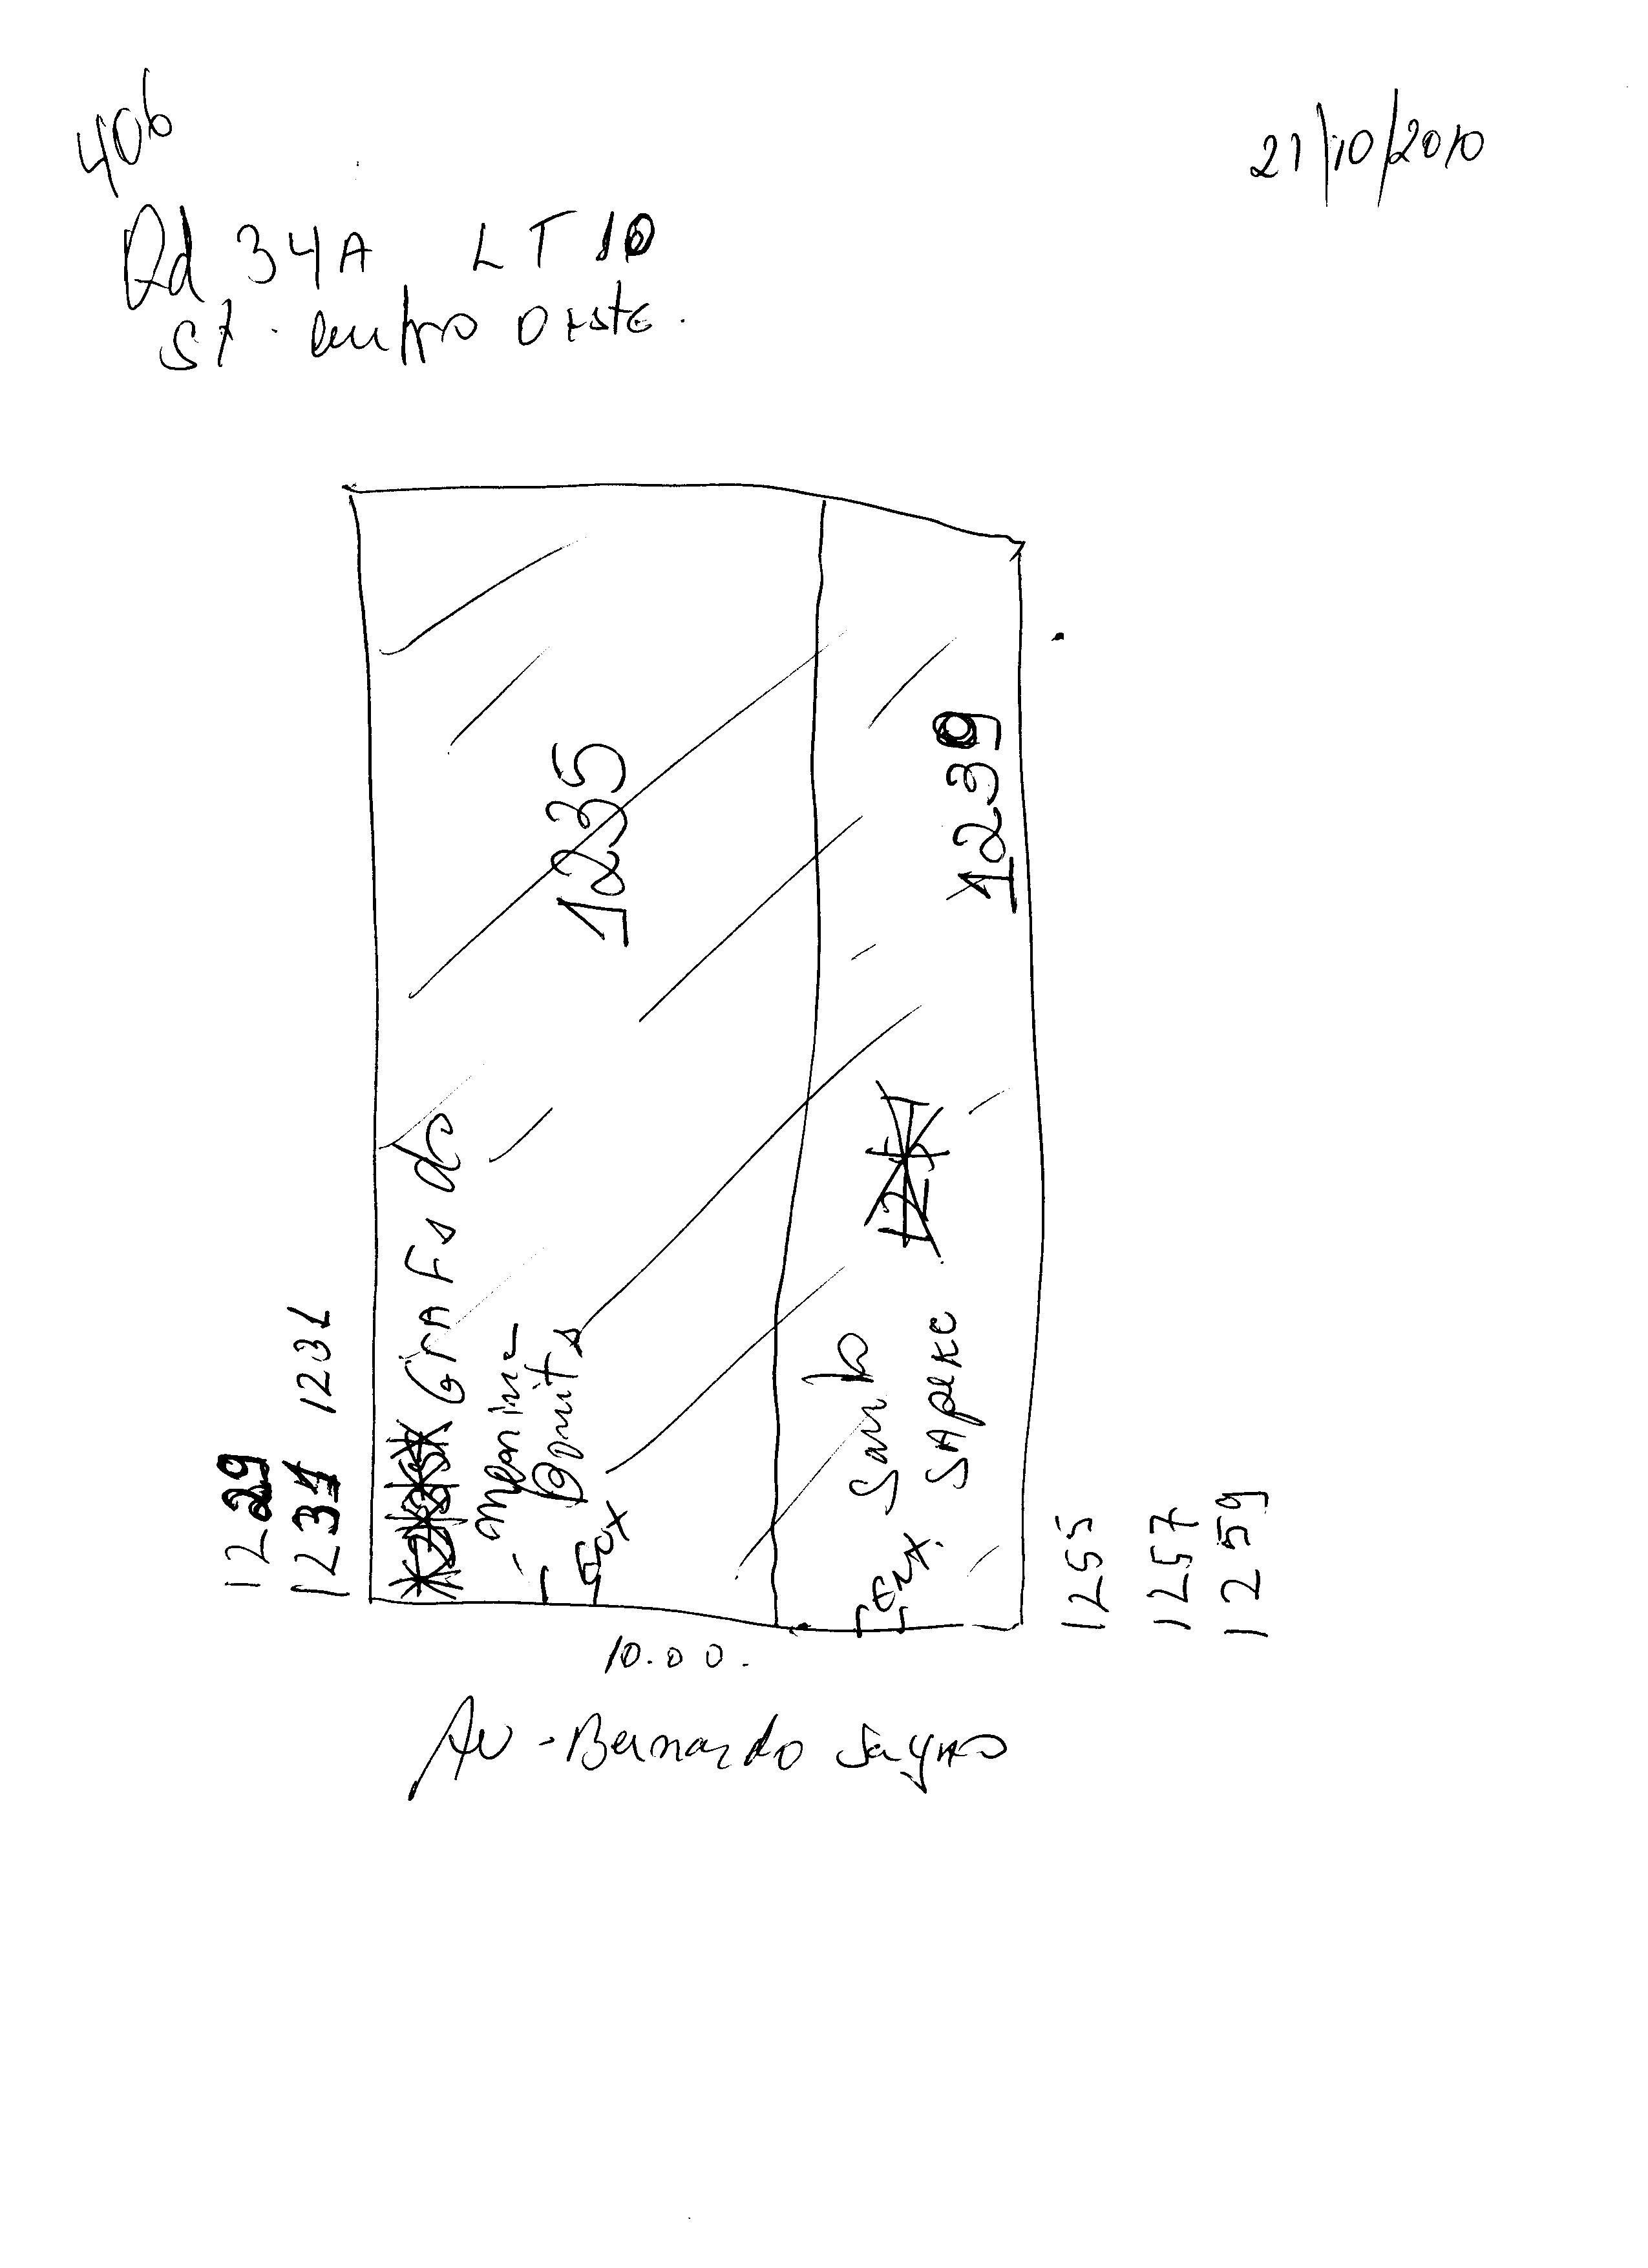 406
21/10/2010
Qd 34A LT 10
St. Centro Oeste.
1235
1239
Grafs do
menina
Bonita
Samba
SAPEKE
1229
1231 1231
1255
1257
1259
10.00.
Av - Bernardo Sayao